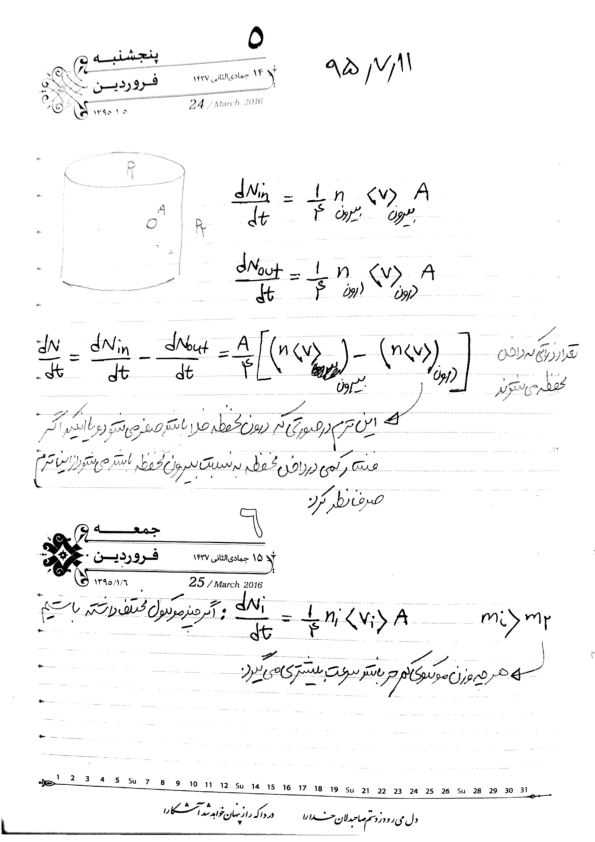 ۵
۹۵,۷,۱۱
پنجشنبه ۵
۱۴ جمادی‌الثانی ۱۴۳۷ فروردین
24 / March 2016
۱۳۹۵/۱/۵
P₁
A
dNin/dt = ۱/۴ n بیرون <v> بیرون A
dNout/dt = ۱/۴ n درون <v> درون A
dN/dt = dNin/dt − dNout/dt = A/۴ [(n<v> بیرون) − (n<v>) درون]
تعداد ذراتی که داخل
محفظه می‌شوند
این ترم در صورتی که درون محفظه خلا باشد صفر می‌شود و یا اینکه اگر
فشار کمی در داخل محفظه به نسبت بیرون محفظه باشد می‌شود از این ترم
صرفنظر کرد.
۶
جمعه ۶
۱۵ جمادی‌الثانی ۱۴۳۷ فروردین
25 / March 2016
۱۳۹۵/۱/۶
اگر چند مولکول مختلف داشته باشیم : dNi/dt = ۱/۴ ni <vi> A
m₁ > m₂
هر چه وزن مولکولی کم‌تر باشد سرعت بیشتری می‌گیرد.
1 2 3 4 5 Su 7 8 9 10 11 12 Su 14 15 16 17 18 19 Su 21 22 23 24 25 26 Su 28 29 30 31
دل می‌رود ز دستم صاحبدلان خدا را دردا که راز پنهان خواهد شد آشکارا